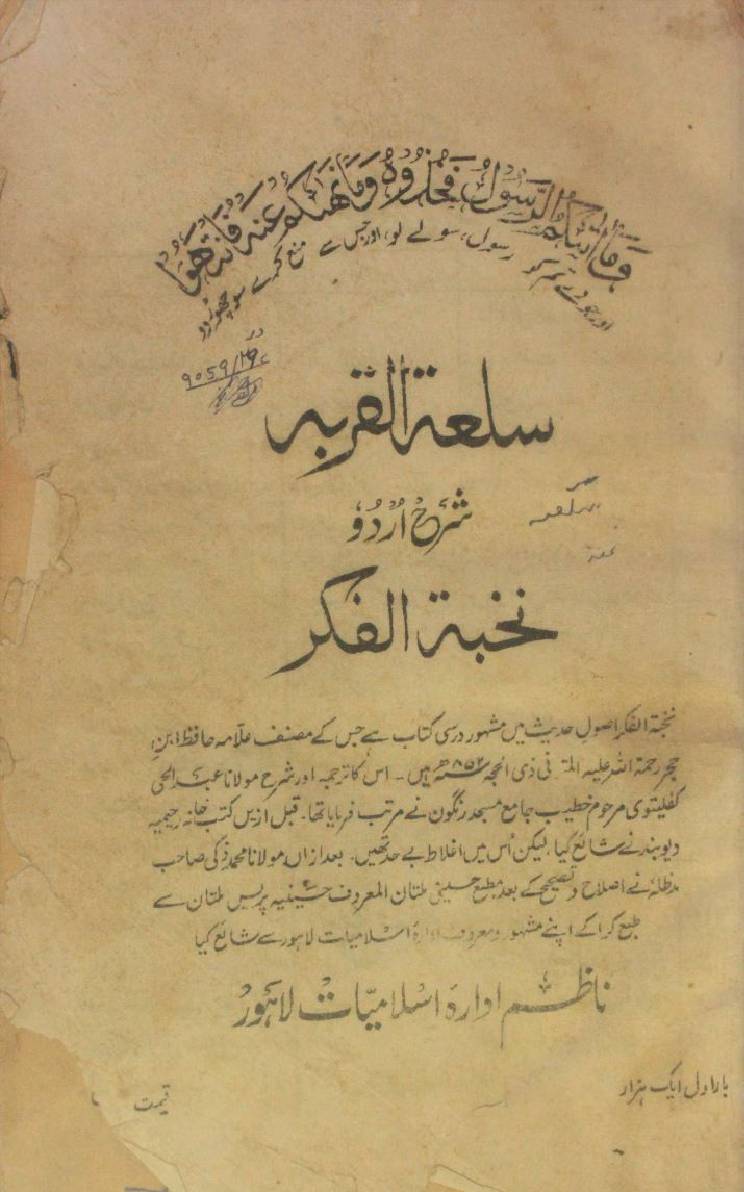 وَمَا اٰتٰىكُمُ الرَّسُوْلُ فَخُذُوْهُ وَمَا نَهٰىكُمْ عَنْهُ فَانْتَهُوْا
اور جو دے تم کو رسول، سو لے لو، اور جس سے منع کرے سو چھوڑ دو
۹۰۵۹
سلعۃ القربہ
شَرح اُردُو
نخبۃ الفکر
نخبۃ الفکر اصولِ حدیث میں مشہور درسی کتاب ہے جس کے مصنف علّامہ حافظ ابنِ
حجر رحمۃ اللہ علیہ المتوفی ذی الحجہ ۸۵۲ھ ہیں۔ اس کا ترجمہ اور شرح مولانا عبد الحی
کفلیتوی مرحوم خطیب جامع مسجد رنگون نے مرتب فرمایا تھا۔ قبل ازیں کتب خانہ رحیمیہ
دیوبند نے شائع کیا، لیکن اُس میں اغلاط بے حد تھیں۔ بعد ازاں مولانا محمد ذکی صاحب
مدظلہٗ نے اصلاح و تصحیح کے بعد مطبع حسینی ملتان المعروف حسینیہ پریس ملتان سے
طبع کرا کے اپنے مشہور و معروف ادارۂ اسلامیات لاہور سے شائع کیا
ناظم ادارۂ اسلامیّات لاہور
بار اول ایک ہزار
قیمت